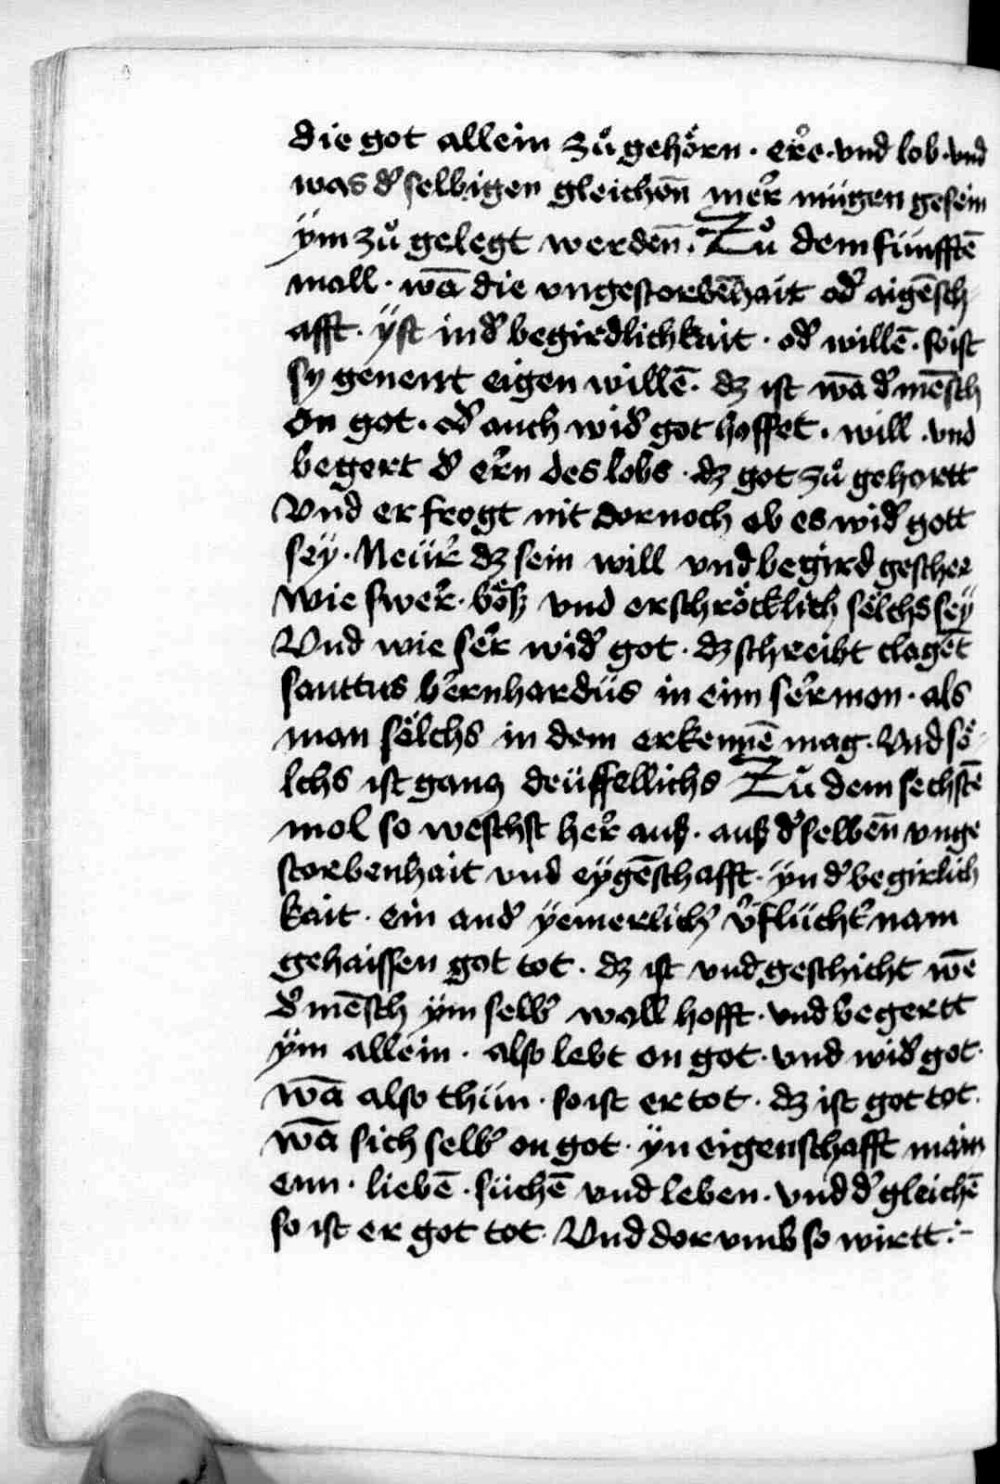 die got allein zů gehörn · ere · vnd lob · vnd
was d' selbigen gleichen̄ mer mügen gesein
ÿm zů gelegt werden̄. Zů dem fünfftē
mall · wā die vngestorbēhait od' aigēsch
afft · ÿst in d' begirdlichkait · od' willē · so ist
sy genent eigen willē · dz ist wā d' mēsch
on got · od' auch wid' got hoffet · will · vnd
begert d' ern des lobs · dz got zů gehortt
Vnd er frogt nit dornoch ob es wid' gott
seÿ · Neür dz sein will vnd begird geschee
wie swer · bößz vnd erschröcklich sölchs seÿ
Vnd wie ser wid' got · dz schreibt clagēt
santtus bernhardüs in eim sermon · als
man sölchs in dem erkennē mag · Vnd sö-
lchs ist gancz deüffellichs Zů dem sechstē
mol so weschst her auß · auß d' selben̄ vnge
storbenhait vnd eÿgēschafft · ÿn d' begirlich
kait · ein and' ÿemerlich' v'flücht' nam
gehaissen got tot · dz ist vnd geschicht wē
d' mēsch ÿm selb' woll hofft · vnd begertt
ÿm allein · also lebt on got · vnd wid' got ·
wā also thün · so ist er tot · dz ist got tot ·
wā sich selb' on got · ÿn eigenschafft main
enn · liebē · süchē vnd leben · vnd d' gleichē
so ist er got tot · Vnd dor vmb so wirtt :-